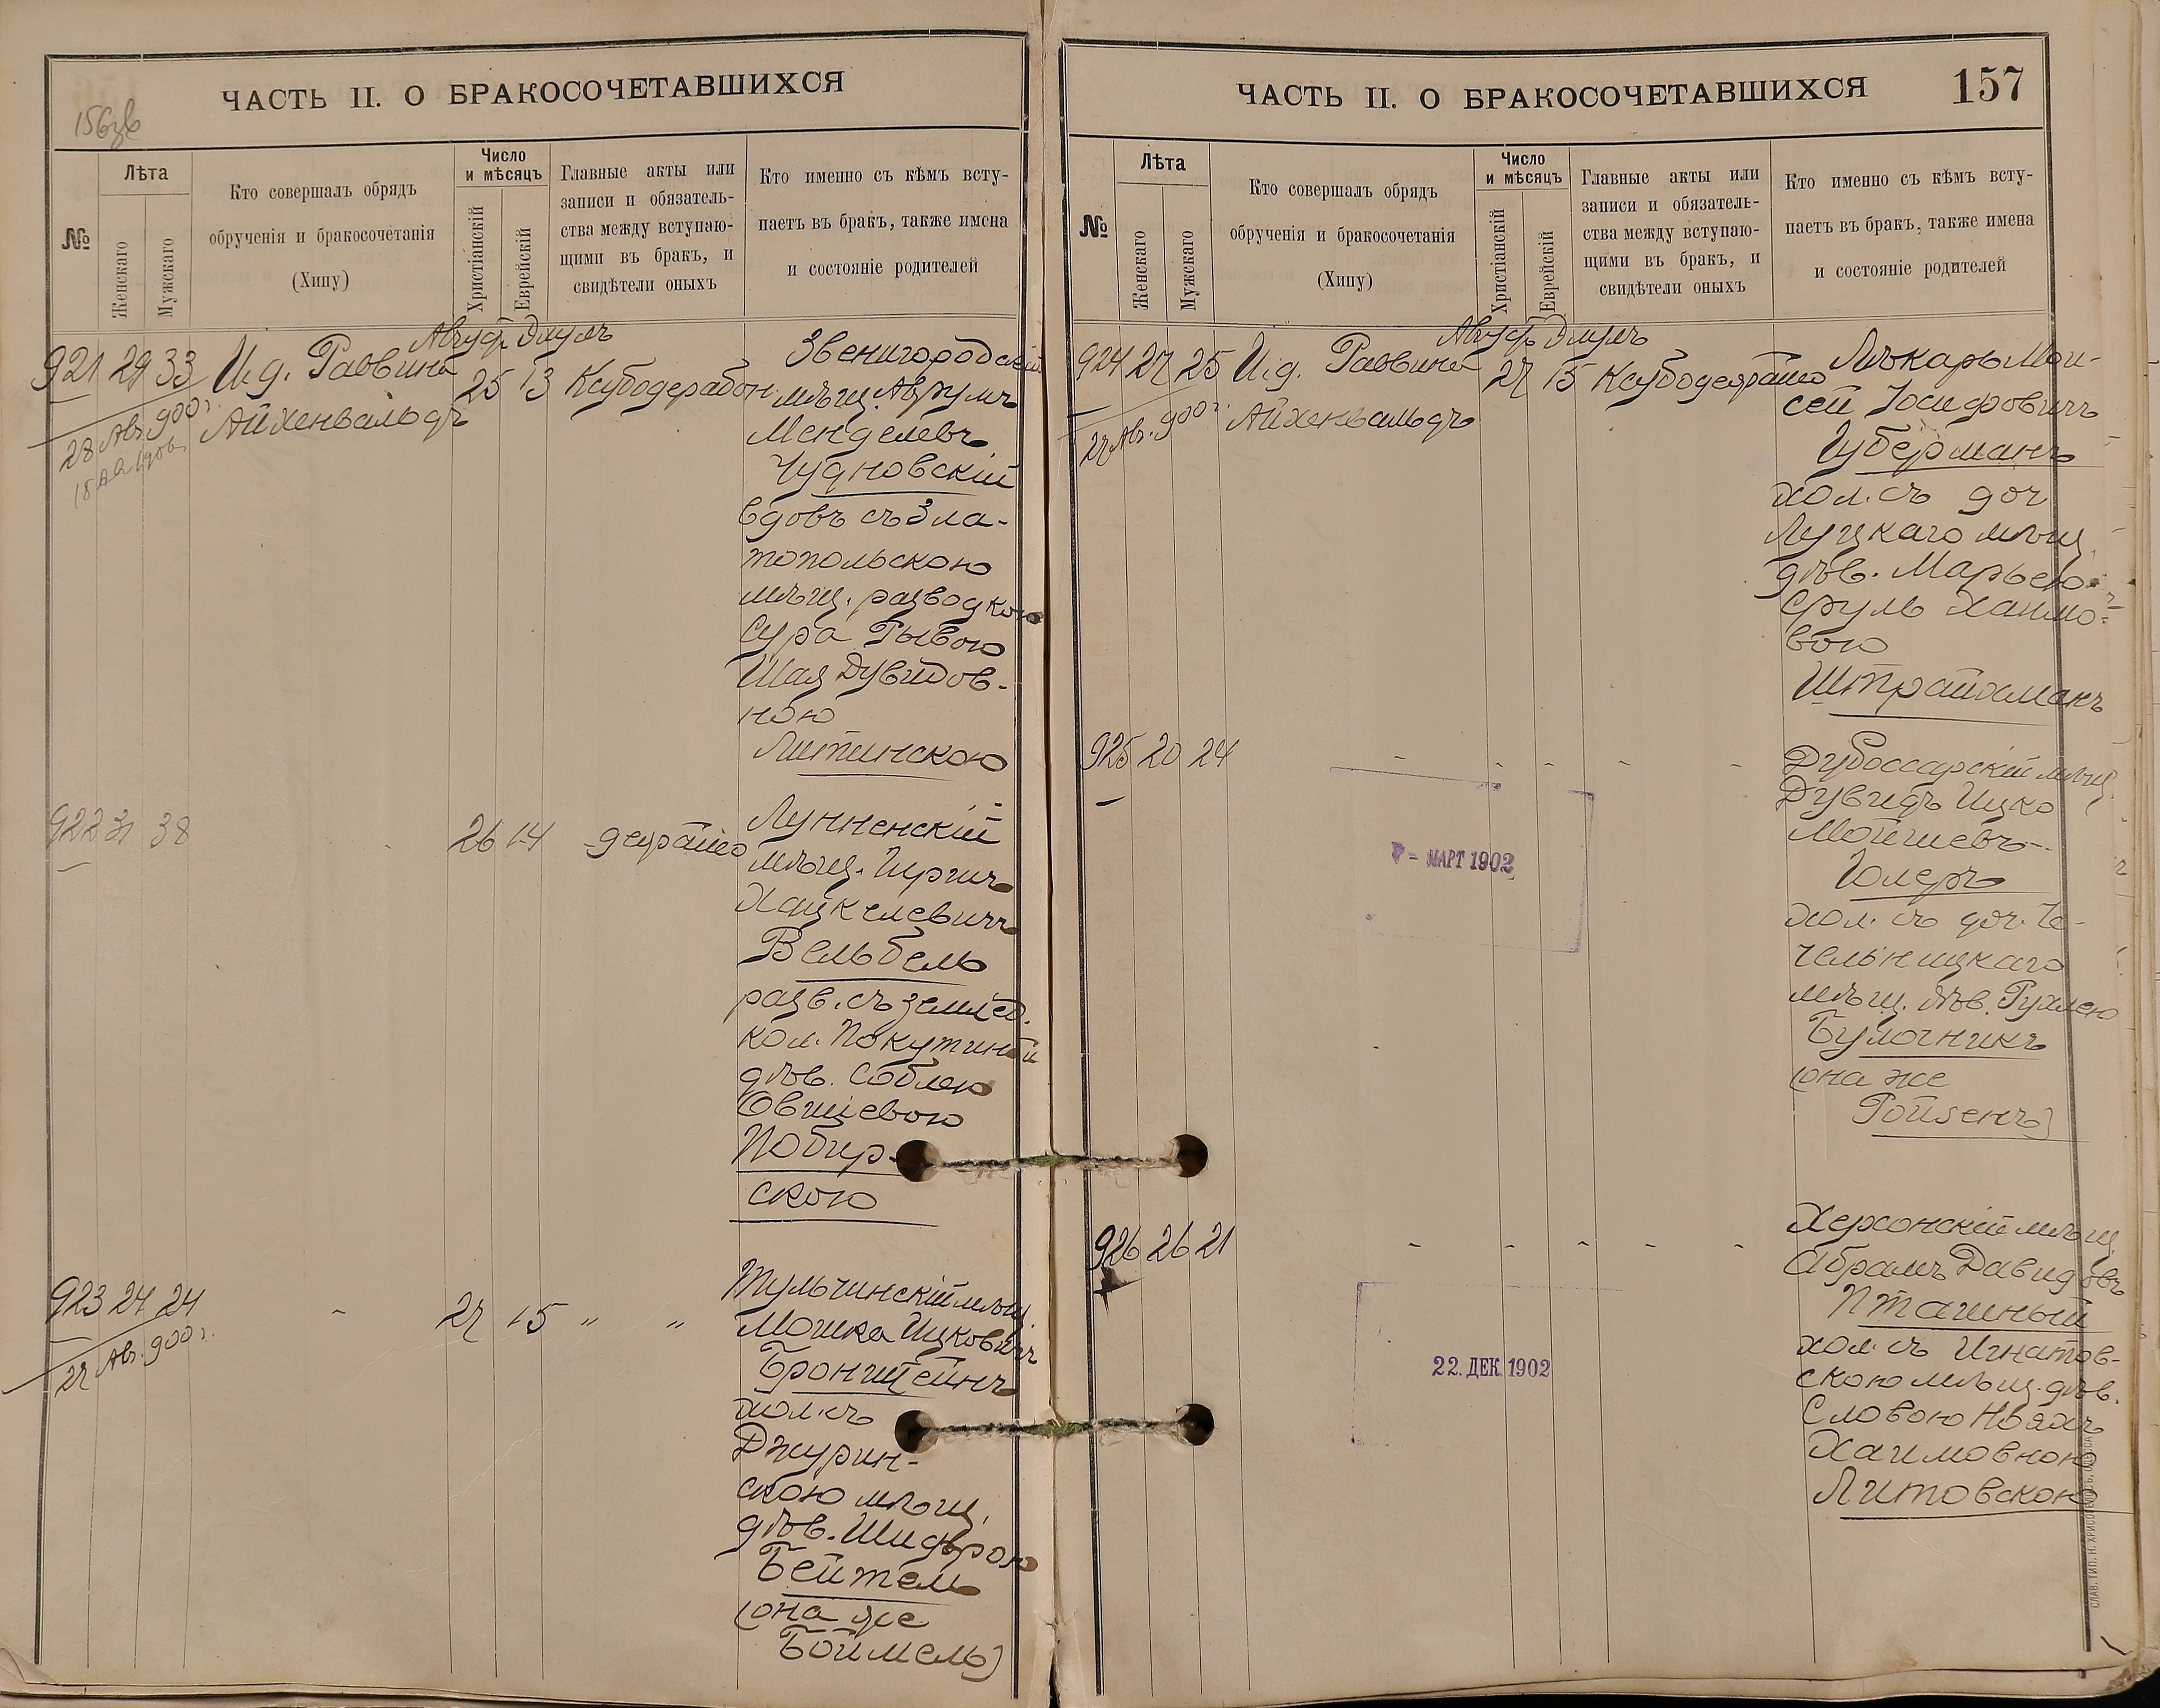 ЧАСТЬ II. О БРАКОСОЧЕТАВШИХСЯ
№
Лѣта
Женскаго
Мужскаго
Кто совершалъ обрядъ
обрученія и бракосочетанія
(Хипу)
Число
и мѣсяцъ
Христіанскій
Еврейскій
Главные акты или
записи и обязатель-
ства между вступаю-
щими въ бракъ, и
свидѣтели оныхъ
Кто именно съ кѣмъ всту-
паетъ въ бракъ, также имена
и состояніе родителей
Августъ Элулъ
921 29 33 И.д. Раввина 25 13
Айхенвальдъ
28 Авг. 900 г.
Звенигородскій
мѣщ. Аврумъ
Менделевъ
Чудновскій
вдовъ съ Зла-
топольскою
мѣщ. разводкою
Сура Рывою
Шая Дувидов-
ною
Литинскою
922 31 38 26 14
Лунненскій
мѣщ. Гиршъ
Хацкелевичъ
Вельбель
разв. съ землед.
кол. Покутиной
дѣв. Соблею
Овшіевою
Побир-
скою
923 24 24 - 27 15 " "
27 Авг. 900 г.
Тульчинскій мѣщ.
Мошка Ицковичъ
Бронштейнъ
хол. съ
Джурин-
скою мѣщ.
дѣв. Шифрою
Бейтель
(она же
Боймель)
ЧАСТЬ II. О БРАКОСОЧЕТАВШИХСЯ 157
№
Лѣта
Женскаго
Мужскаго
Кто совершалъ обрядъ
обрученія и бракосочетанія
(Хипу)
Число
и мѣсяцъ
Христіанскій
Еврейскій
Главные акты или
записи и обязатель-
ства между вступаю-
щими въ бракъ, и
свидѣтели оныхъ
Кто именно съ кѣмъ всту-
паетъ въ бракъ, также имена
и состояніе родителей
Августъ Элулъ
924 27 25 И.д. Раввина 27 15
Айхенвальдъ
27 Авг. 900 г.
Лѣкарь Мои-
сей Іосифовичъ
Губерманъ
хол. съ доч
Луцкаго мѣщ.
дѣв. Марьею
Сруль Хаимо-
вою
Штрайхманъ
925 20 24 - - - - -
МАРТ 1902
Дубоссарскій мѣщ.
Дувидъ Ицко
Мойшевъ
Юлеръ
хол. съ доч. Че-
чельницкаго
мѣщ. дѣв. Рухлею
Булочникъ
(она же
Ройзенъ)
926 26 21 - - - - -
22. ДЕК. 1902
Херсонскій мѣщ.
Абрамъ Давидовъ
Пташный
хол. съ Игнатов-
скою мѣщ. дѣв.
Словою Нояхъ
Хаимовною
Литовскою